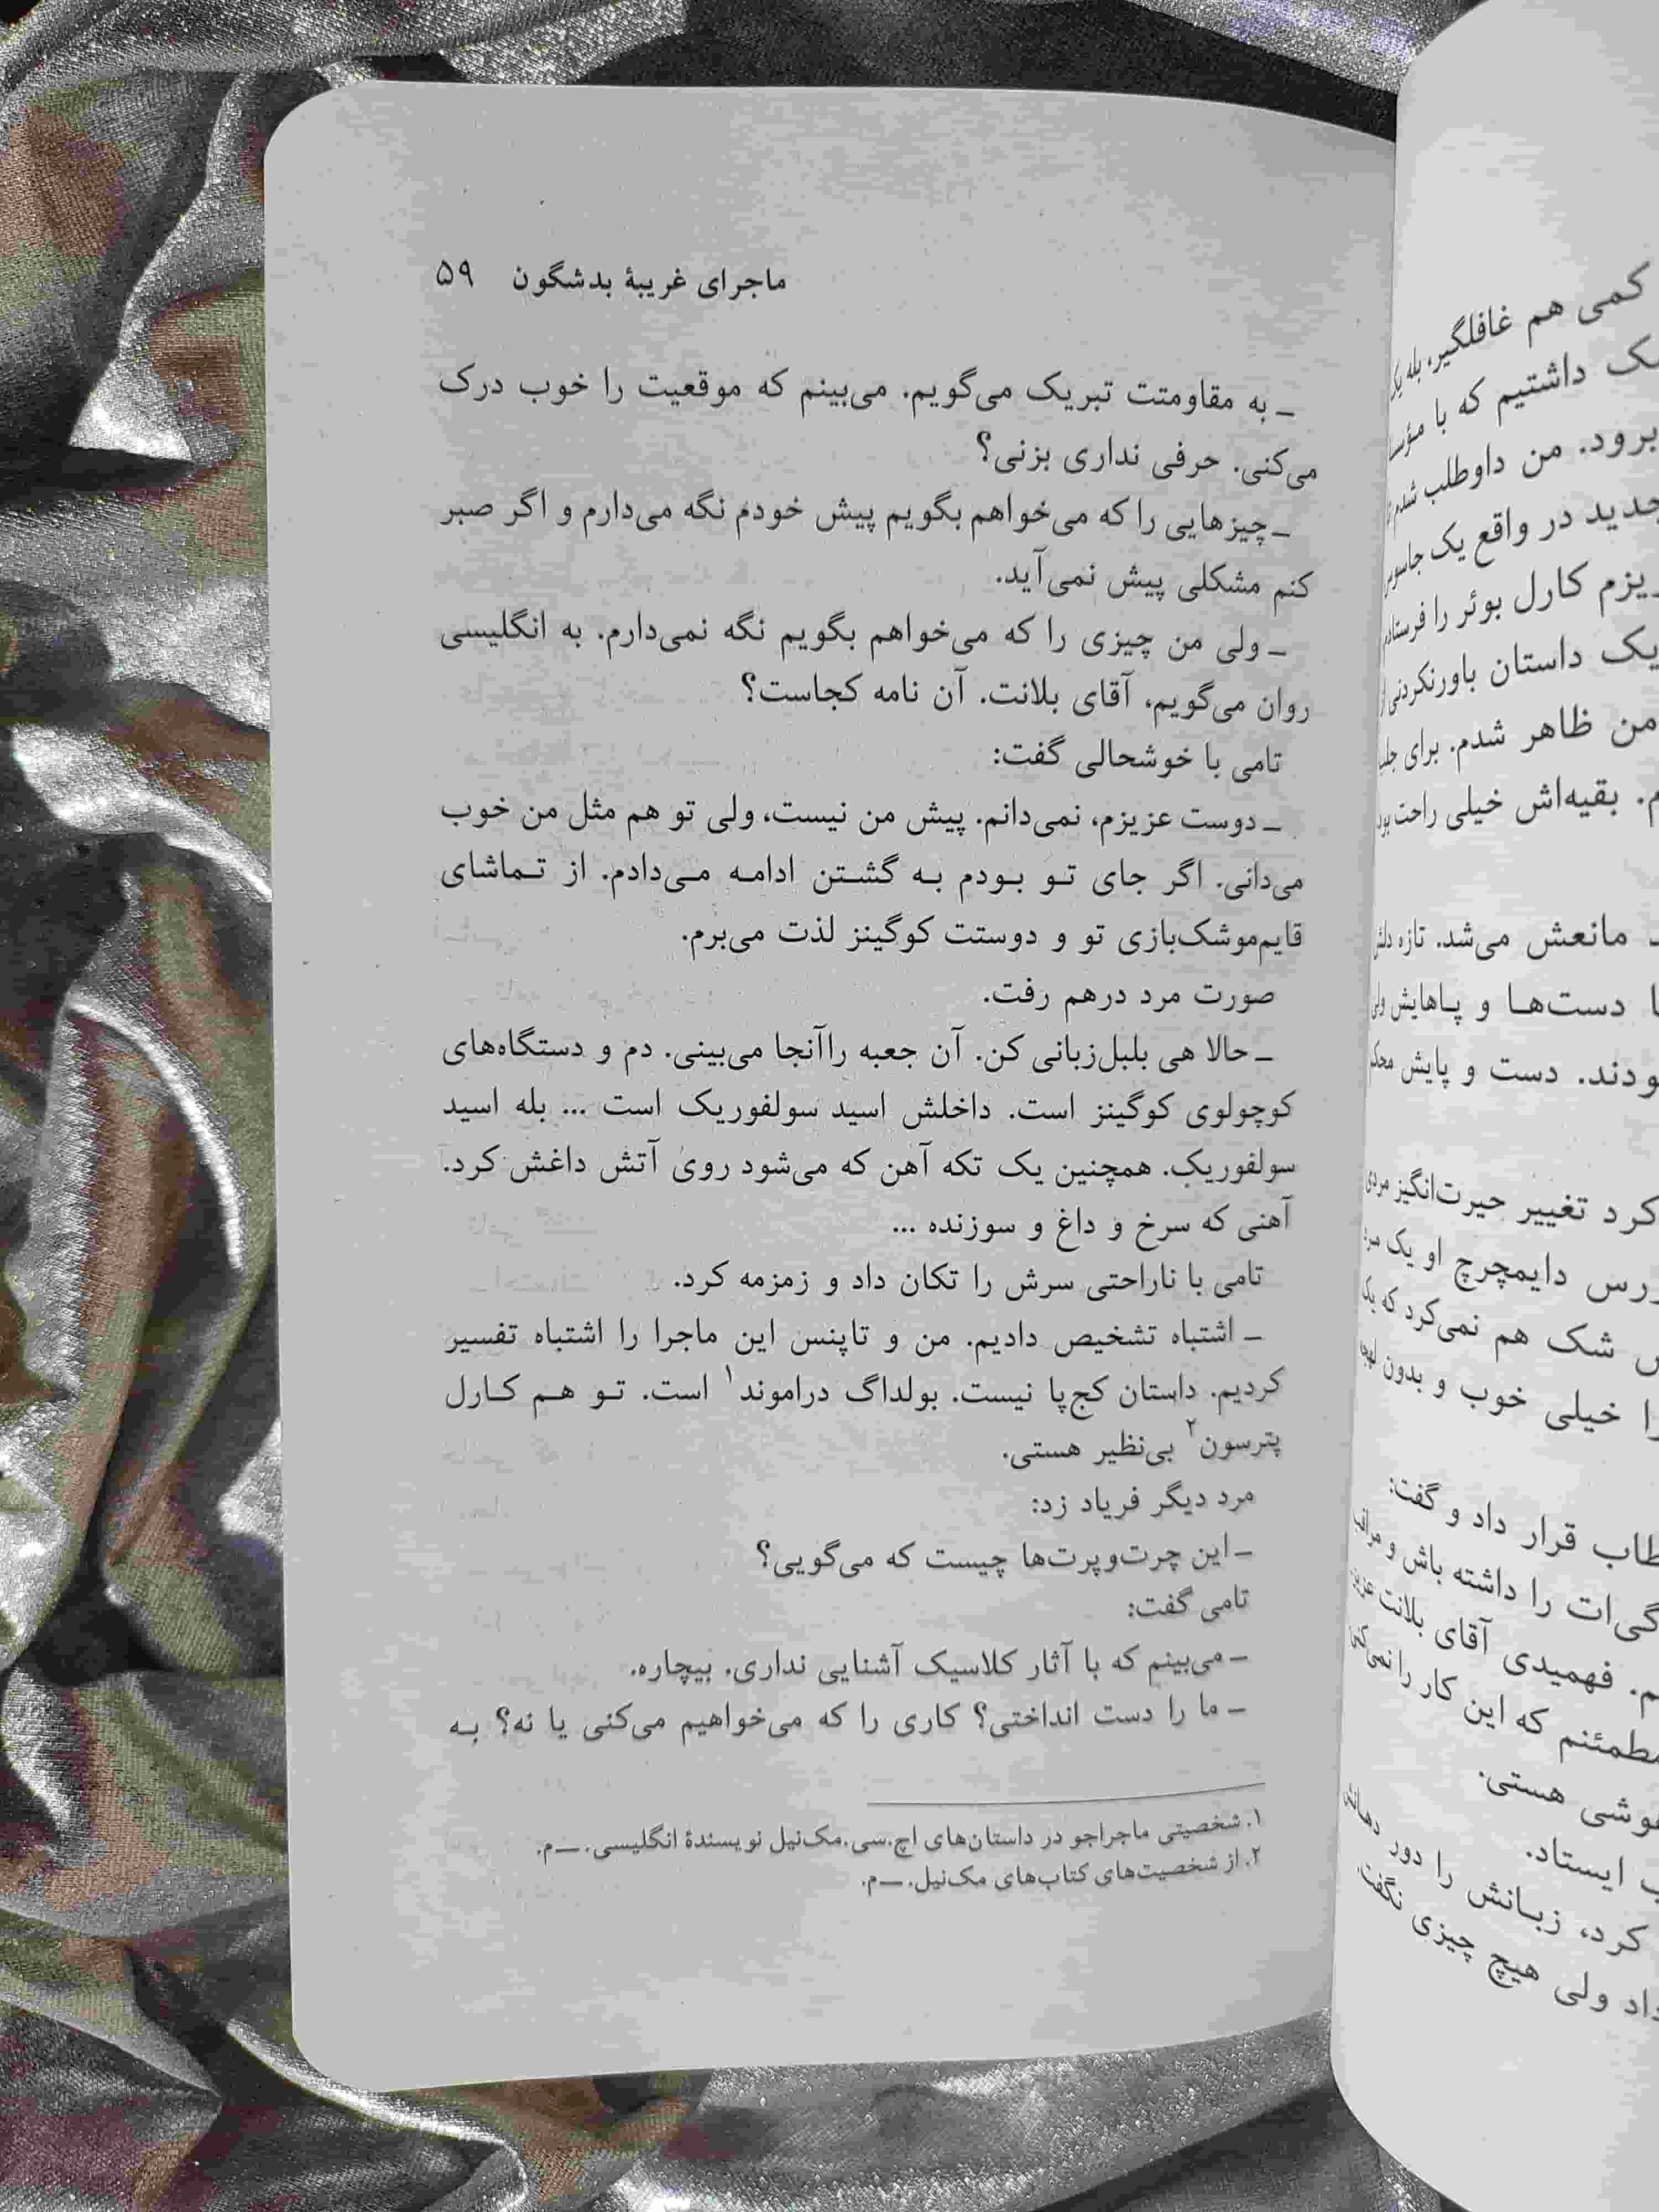 ماجرای غریبهٔ بدشگون ۵۹
ـ به مقاومتت تبریک می‌گویم. می‌بینم که موقعیت را خوب درک
می‌کنی. حرفی نداری بزنی؟
ـ چیزهایی را که می‌خواهم بگویم پیش خودم نگه می‌دارم و اگر صبر
کنم مشکلی پیش نمی‌آید.
ـ ولی من چیزی را که می‌خواهم بگویم نگه نمی‌دارم. به انگلیسی
روان می‌گویم، آقای بلانت. آن نامه کجاست؟
تامی با خوشحالی گفت:
ـ دوست عزیزم، نمی‌دانم. پیش من نیست، ولی تو هم مثل من خوب
می‌دانی. اگر جای تو بودم به گشتن ادامه می‌دادم. از تماشای
قایم‌موشک‌بازی تو و دوستت کوگینز لذت می‌برم.
صورت مرد درهم رفت.
ـ حالا هی بلبل‌زبانی کن. آن جعبه را آنجا می‌بینی. دم و دستگاه‌های
کوچولوی کوگینز است. داخلش اسید سولفوریک است ... بله اسید
سولفوریک. همچنین یک تکه آهن که می‌شود روی آتش داغش کرد.
آهنی که سرخ و داغ و سوزنده ...
تامی با ناراحتی سرش را تکان داد و زمزمه کرد.
ـ اشتباه تشخیص دادیم. من و تاپنس این ماجرا را اشتباه تفسیر
کردیم. داستان کج‌پا نیست. بولداگ دراموند۱ است. تو هم کارل
پترسون۲ بی‌نظیر هستی.
مرد دیگر فریاد زد:
ـ این چرت‌وپرت‌ها چیست که می‌گویی؟
تامی گفت:
ـ می‌بینم که با آثار کلاسیک آشنایی نداری. بیچاره.
ـ ما را دست انداختی؟ کاری را که می‌خواهیم می‌کنی یا نه؟ به
۱. شخصیتی ماجراجو در داستان‌های اچ.سی.مک‌نیل نویسندهٔ انگلیسی. ــ م.
۲. از شخصیت‌های کتاب‌های مک‌نیل. ــ م.
کمی هم غافلگیر، بله یک
داشتیم که با
برود. من داوطلب شدم
جدید در واقع یک جاسوس
کارل بوئر را
یک داستان باورنکردنی از
من ظاهر شدم. برای
بقیه‌اش خیلی راحت بود
مانعش می‌شد. تازه
دست‌ها و پاهایش
دست و پایش
کرد تغییر حیرت‌انگیز مردی
دایمچرچ او یک
شک هم نمی‌کرد که یک
خیلی خوب و بدون
قرار داد و گفت:
را داشته باش و
فهمیدی آقای بلانت
که این کار را
هستی.
ایستاد.
کرد، زبانش را دور
ولی هیچ چیزی نگفت.